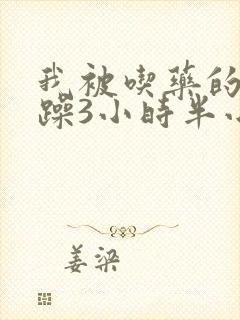 我被喫藥的
躁3小時半
姜梁